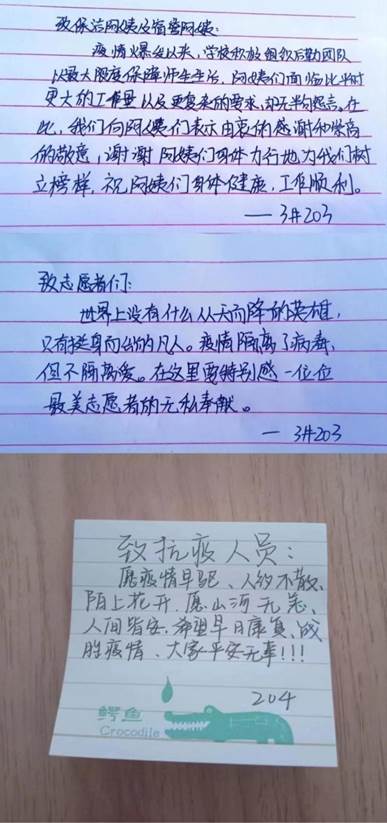 致保洁阿姨及宿管阿姨:
疫情爆发以来,学校积极组织后勤团队
以最大限度保障师生生活,阿姨们面临比平时
更大的工作量以及更复杂的要求,却无半句怨言。在
此,我们向阿姨们表示由衷的感谢和崇高
的敬意,谢谢阿姨们身体力行地为我们树
立榜样,祝阿姨们身体健康,工作顺利。
——3#203
致志愿者们:
世界上没有什么从天而降的英雄,
只有挺身而出的凡人。疫情隔离了病毒,
但不隔离爱。在这里要特别感一位位
最美志愿者的无私奉献。
— 3#203
致抗疫人员:
愿疫情早日、人约不散、
陌上花开、愿山河无恙、
人间皆安、希望早日康复、战
胜疫情、大家平安无事!!!
204
鳄鱼
Crocodile